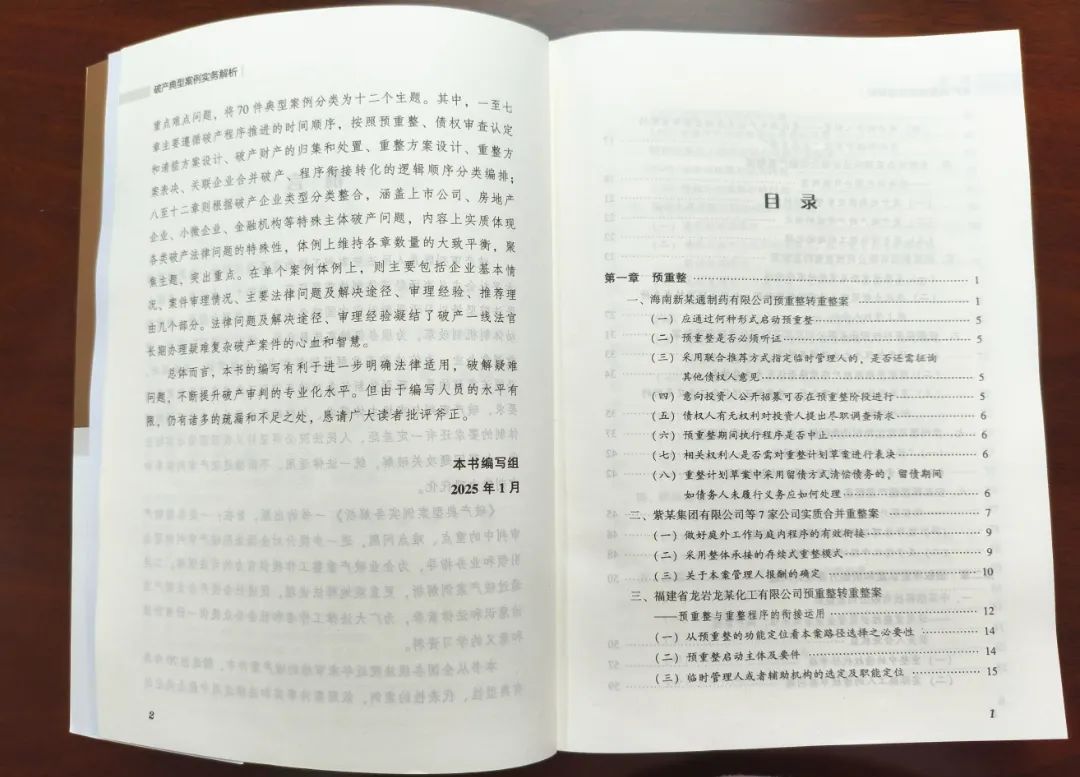 破产典型案例实务解析
重点难点问题，将70件典型案例分类为十二个主题。其中，一至七
章主要遵循破产程序推进的时间顺序，按照预重整、债权审查认定
和清偿方案设计、破产财产的归集和处置、重整方案设计、重整方
案表决、关联企业合并破产、程序衔接转化的逻辑顺序分类编排；
八至十二章则根据破产企业类型分类整合，涵盖上市公司、房地产
企业、小微企业、金融机构等特殊主体破产问题，内容上实质体现
各类破产法律问题的特殊性，体例上维持各章数量的大致平衡，聚
焦主题、突出重点。在单个案例体例上，则主要包括企业基本情
况、案件审理情况、主要法律问题及解决途径、审理经验、推荐理
由几个部分。法律问题及解决途径、审理经验凝结了破产一线法官
长期办理疑难复杂破产案件的心血和智慧。
总体而言，本书的编写有利于进一步明确法律适用，破解疑难
问题，不断提升破产审判的专业化水平。但由于编写人员的水平有
限，仍有诸多的疏漏和不足之处，恳请广大读者批评斧正。
本书编写组
2025年1月
2
目 录
第一章 预重整 1
一、海南新某通制药有限公司预重整转重整案 1
（一）应通过何种形式启动预重整 5
（二）预重整是否必须听证 5
（三）采用联合推荐方式指定临时管理人的，是否还需征询
其他债权人意见 5
（四）意向投资人公开招募可否在预重整阶段进行 6
（五）债权人有无权利对投资人提出尽职调查请求 6
（六）预重整期间执行程序是否中止 6
（七）相关权利人是否需对重整计划草案进行表决 6
（八）重整计划草案中采用留债方式清偿债务的，留债期间
如债务人未履行义务应如何处理 6
二、紫某集团有限公司等7家公司实质合并重整案 7
（一）做好庭外工作与庭内程序的有效衔接 9
（二）采用整体承接的存续式重整模式 9
（三）关于本案管理人报酬的确定 10
三、福建省龙岩龙某化工有限公司预重整转重整案
——预重整与重整程序的衔接运用 12
（一）从预重整的功能定位看本案路径选择之必要性 14
（二）预重整启动主体及要件 14
（三）临时管理人或者辅助机构的选定及职能定位 15
1